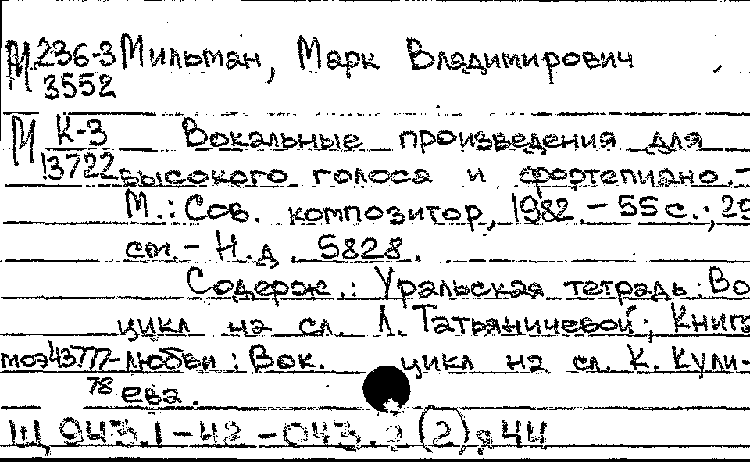 М 236-3 Мильман, Марк Владимирович
3552
М К-3 Вокальные произведения для
13722 высокого голоса и фортепиано.-
М.: Сов. композитор, 1982.- 55 с.; 29
см.- Н.д. 5828.
Содерж.: Уральская тетрадь: Во
цикл на сл. Л. Татьяничевой; Книга
моэ43777- любви: Вок. цикл на сл. К. Кули-
78 ева.
Щ 943.1-42-043.2(2)я44